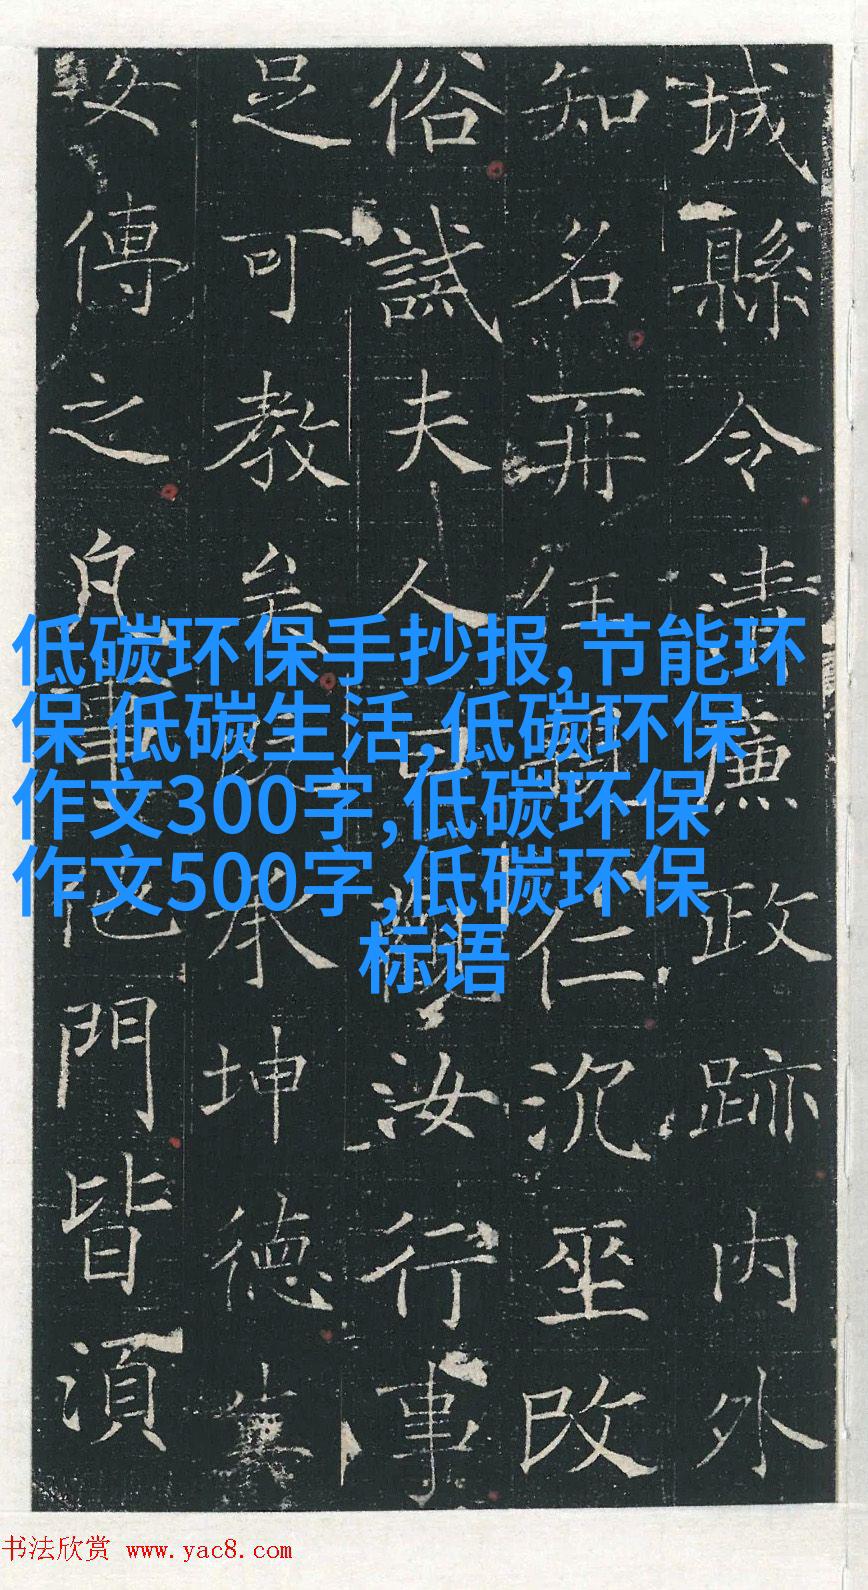 城縣令清廉政跡内外
知名再任仁沉坐改
俗誡夫人可觀汝行事
足可教矣承坤德冀
女傳之凡事他門皆須
低碳环保手抄报,节能环
保 低碳生活,低碳环保
作文300字,低碳环保
作文500字,低碳环保
标语
书法欣赏 www.yac8.com